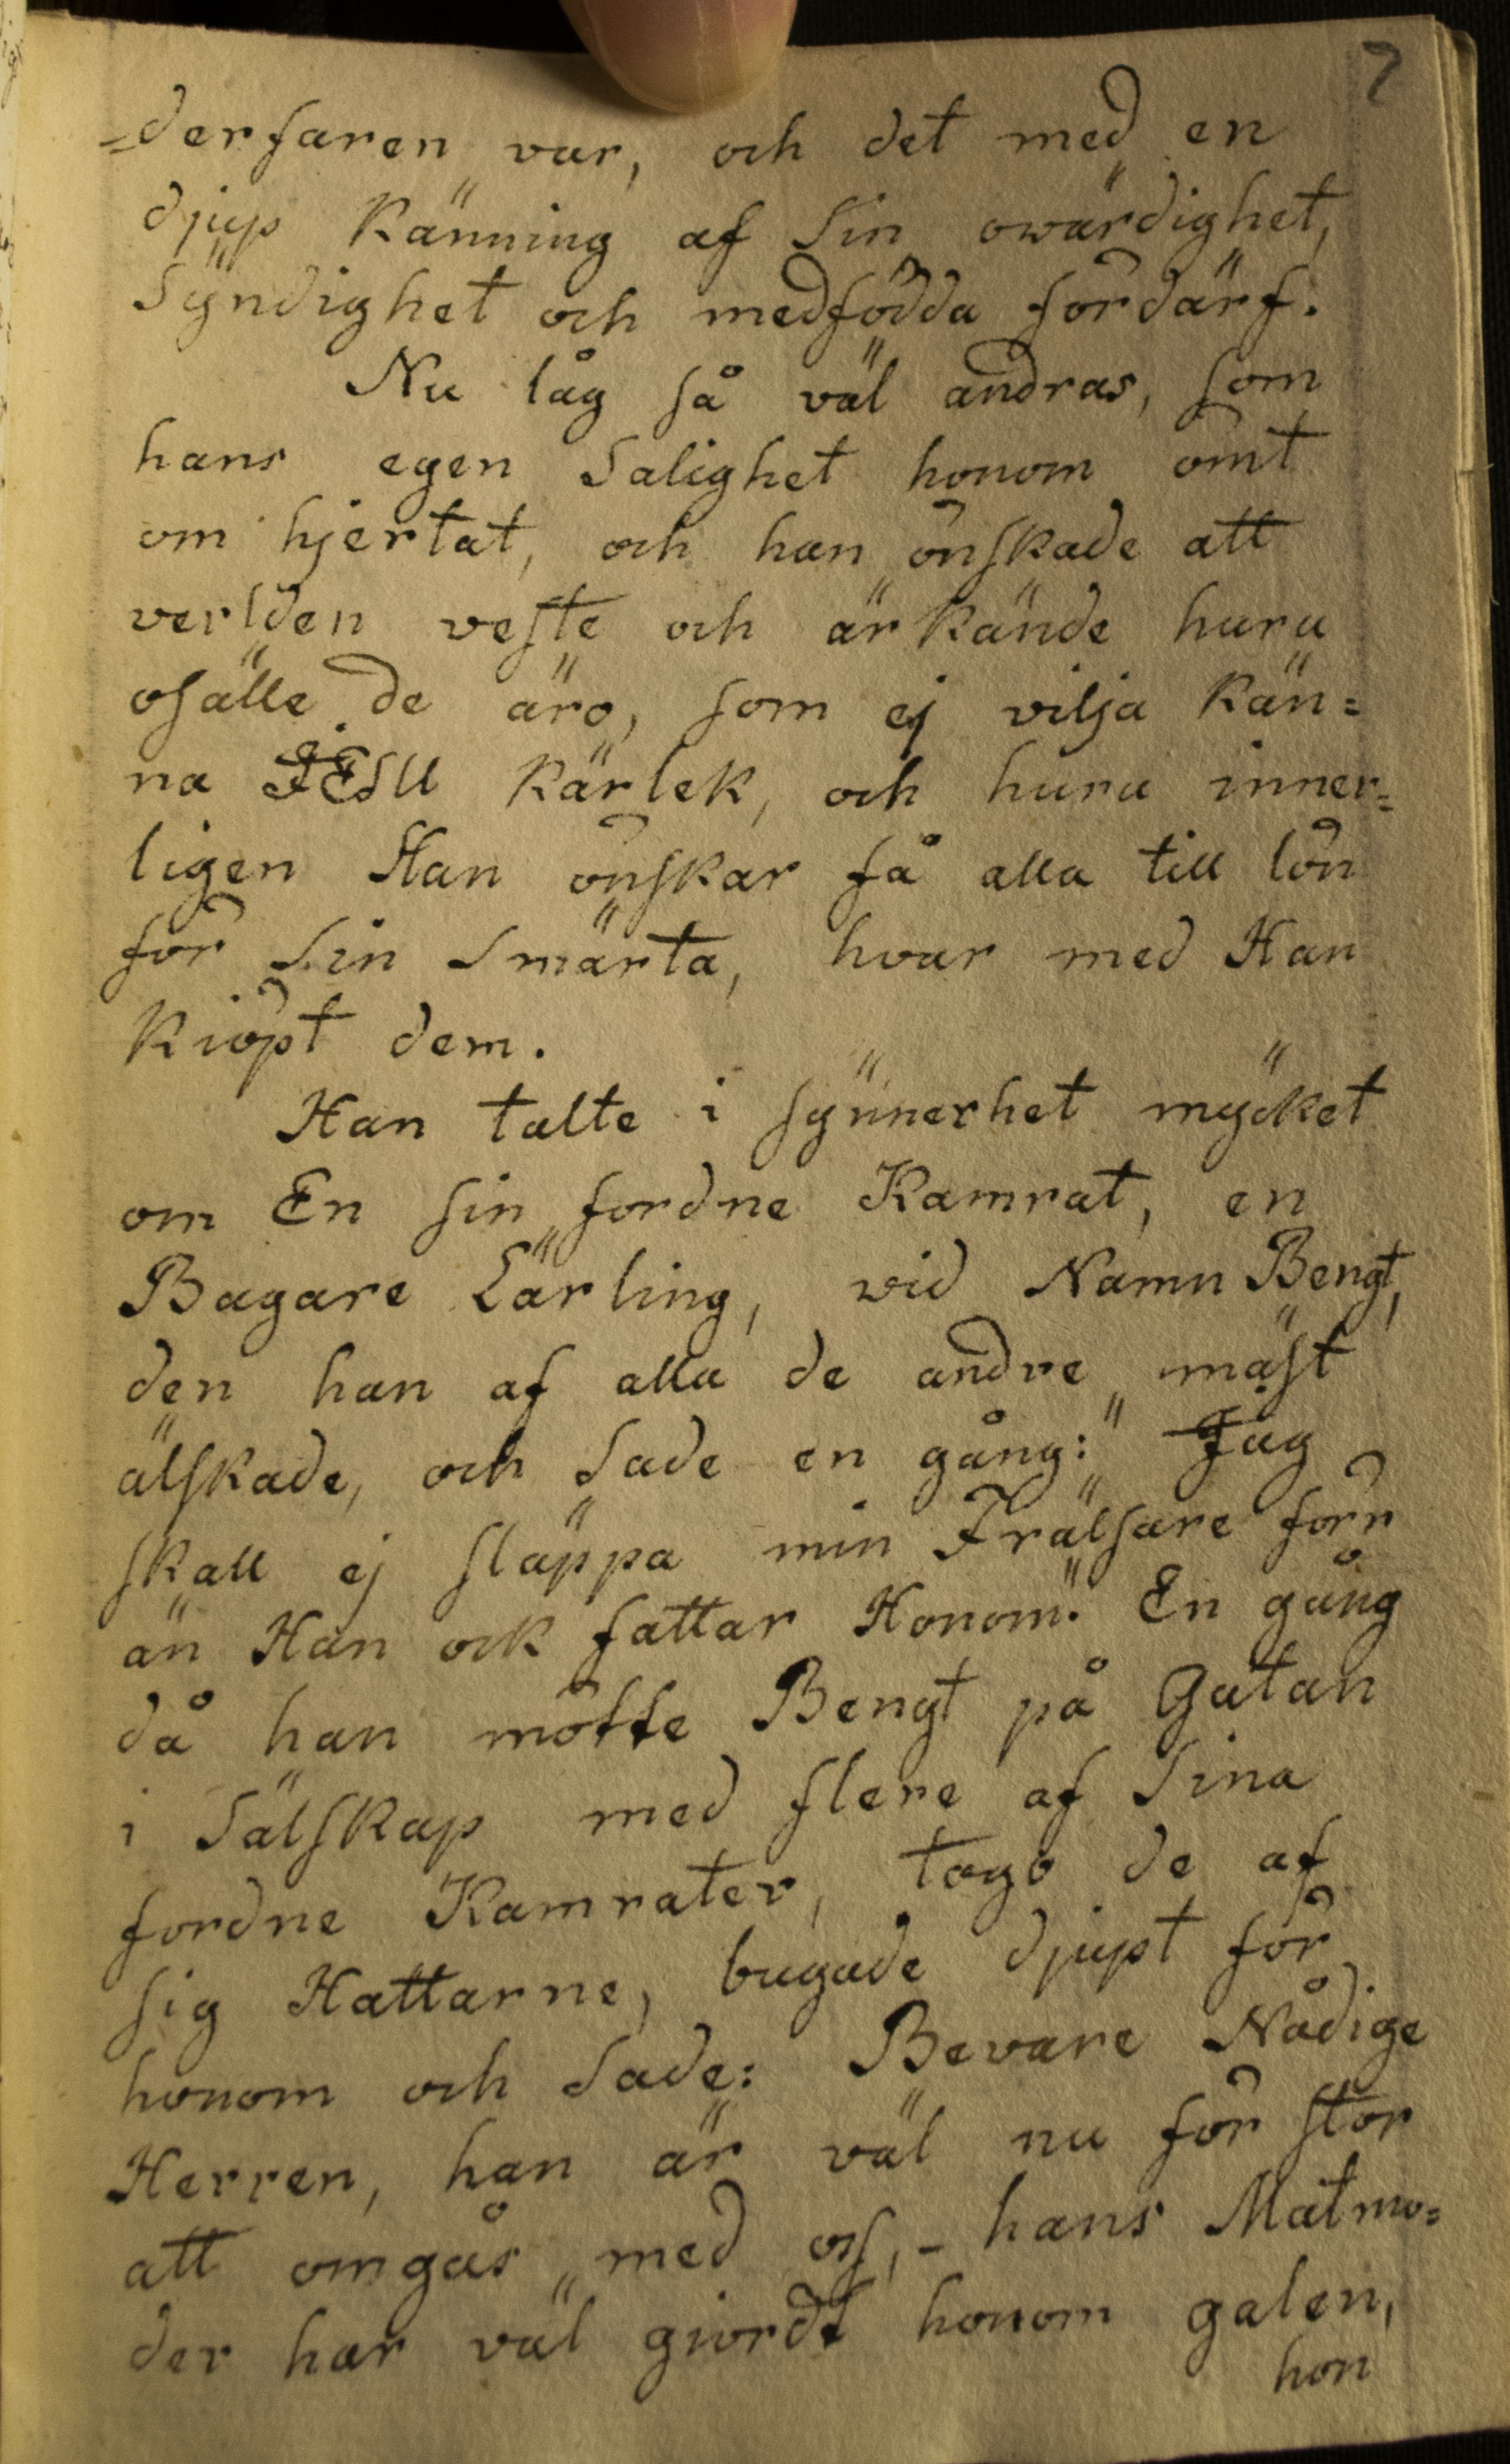 7
=derfaren var, och det med en
djup Känning af Sin owärdighet,
Syndighet och medfödda fördärf.
Nu låg så väl andras, som
hans egen Salighet honom ömt
om hjertat, och han önskade att
verlden veste och ärkände huru
osälle de äro, som ej vilja Kän=
na JESU Kärlek, och huru inner=
ligen Han önskar få alla till lön
för Sin Smärta, hvar med Han
Kiöpt dem.
Han talte i synnerhet mycket
om En sin fordne Kamrat, en
Bagare Lärling, vid Namn Bengt,
den han af alla de andre mäst
älskade, och Sade en gång: " Jag
skall ej släppa min Frälsare förr
än Han ock fattar Honom." En gång
då han mötte Bengt på Gatan
i Sälskap med flere af Sina
fordne Kamrater, togo de af
sig Hattarne, bugade djupt för
honom och Sade: Bevare Nådige
Herren, han är väl nu för stor
att omgås med oss, - hans Matmo=
der har väl giordt honom galen,
hon